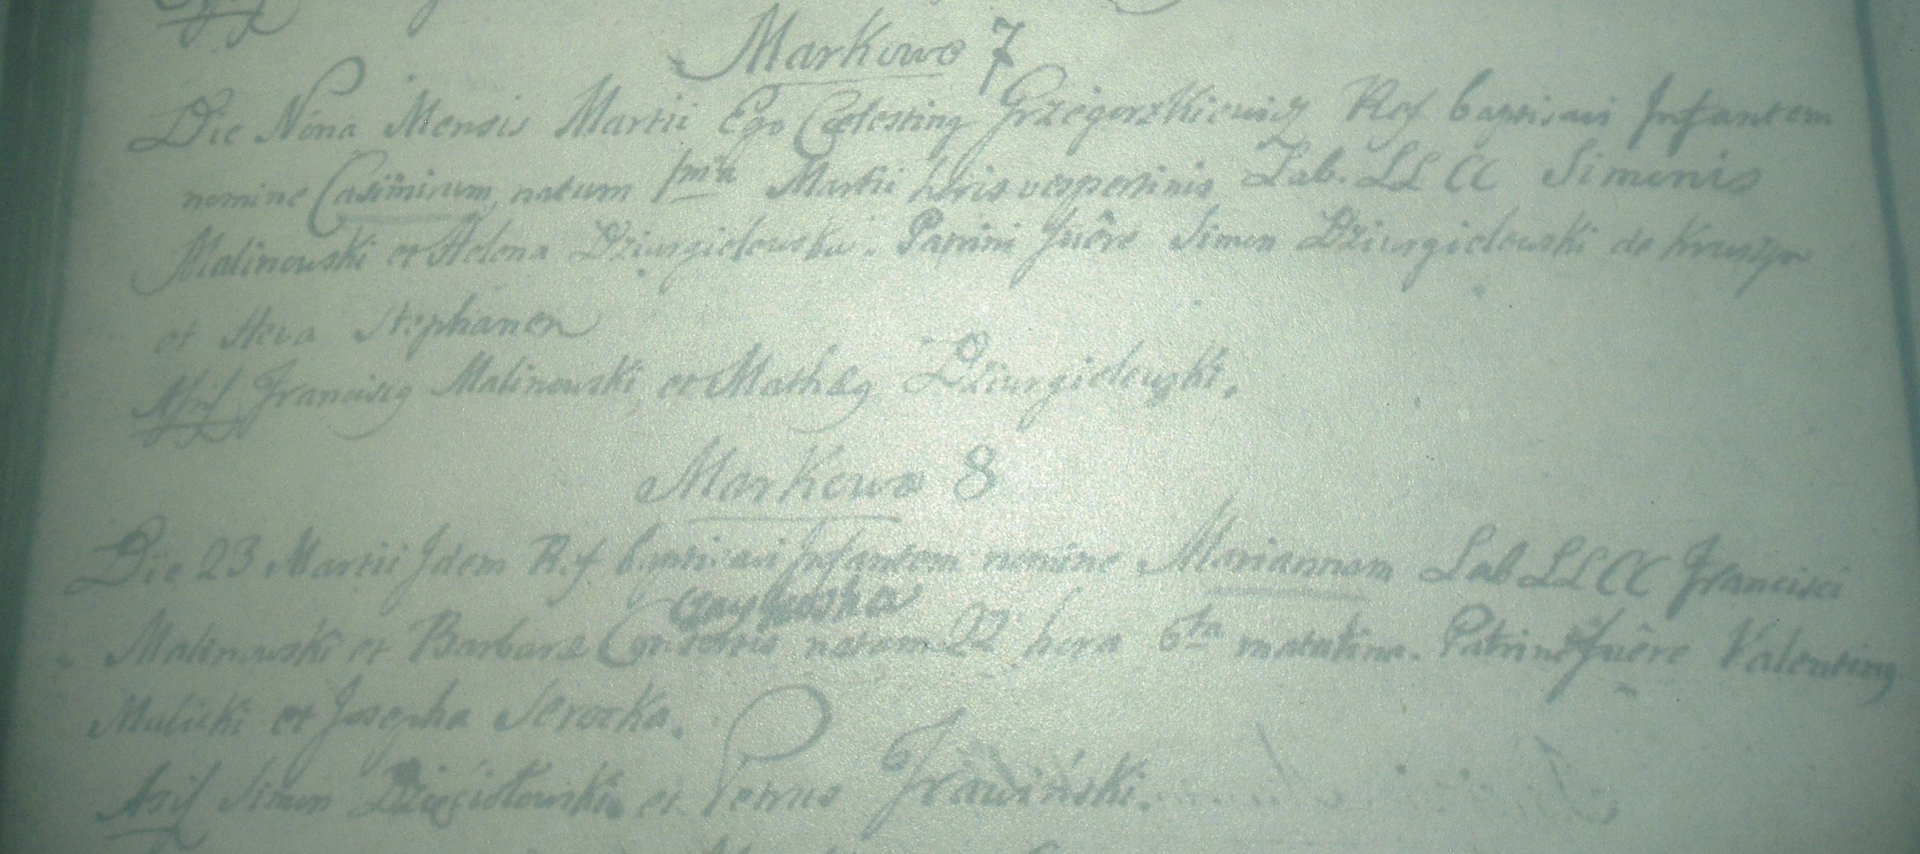 Markowo 7
Die Nona Mensis Martii Ego Caelesting Grzegorzkiewicz Ref baptisavi Infantem
nomine Casimirum, natum 1ma Martii horis vespertinis Lab. LL CC Simonis
Malinowski et Helena Dziurgielowska. Patrini fuere Simon Dziurgielowski de Kruszyn
et Heva Stephanen
Assis Francisg Malinowski, et Mathæg Dziurgielowski.
Markowo 8
Die 23 Martii Idem R.f baptisavi Infantem nomine Mariannam Lab LL CC Francisci
Malinowski et Barbara natam 22 hora 6ta matutina. Patrini fuere Valenting
Mulicki et Josepha Scrocka.
Asis Simon Dzięgiołowski et Petrus Trawiński.